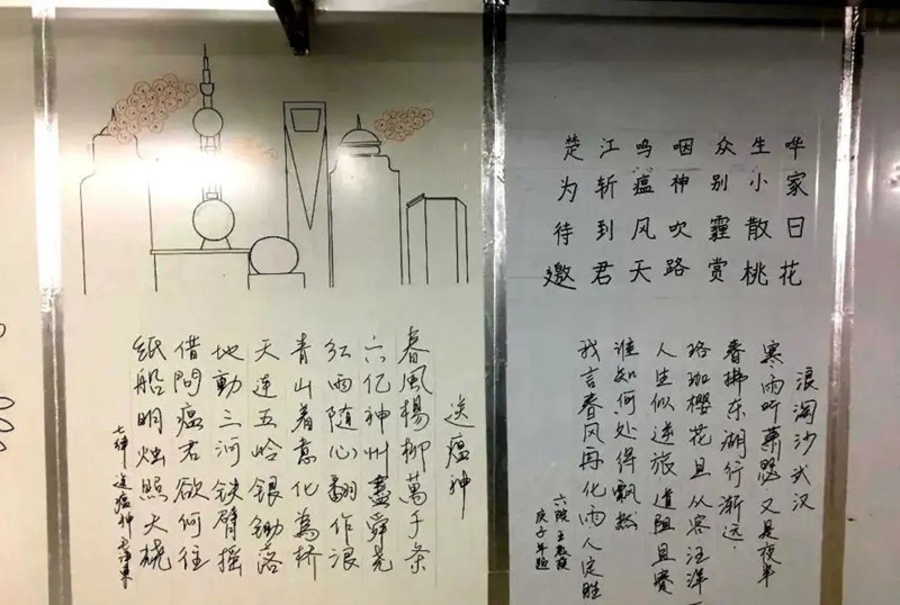 送瘟神
春風楊柳萬千条
六亿神州盡舜尧
红雨随心翻作浪
青山着意化為桥
天连五岭银锄落
地動三河铁臂摇
借問瘟君欲何往
纸船明烛照天烧
七律 送瘟神
楚江呜咽众生哗
为斩瘟神别小家
待到风吹霾散日
邀君天路赏桃花
浪淘沙武汉
寒雨听萧瑟 又是夜半
春拂东湖行渐远.
珞珈樱花且从容 汪洋一
人生似逆旅 道阻且
谁知何处得飘然
我言春风再化雨 人定胜
六院
庚子年题